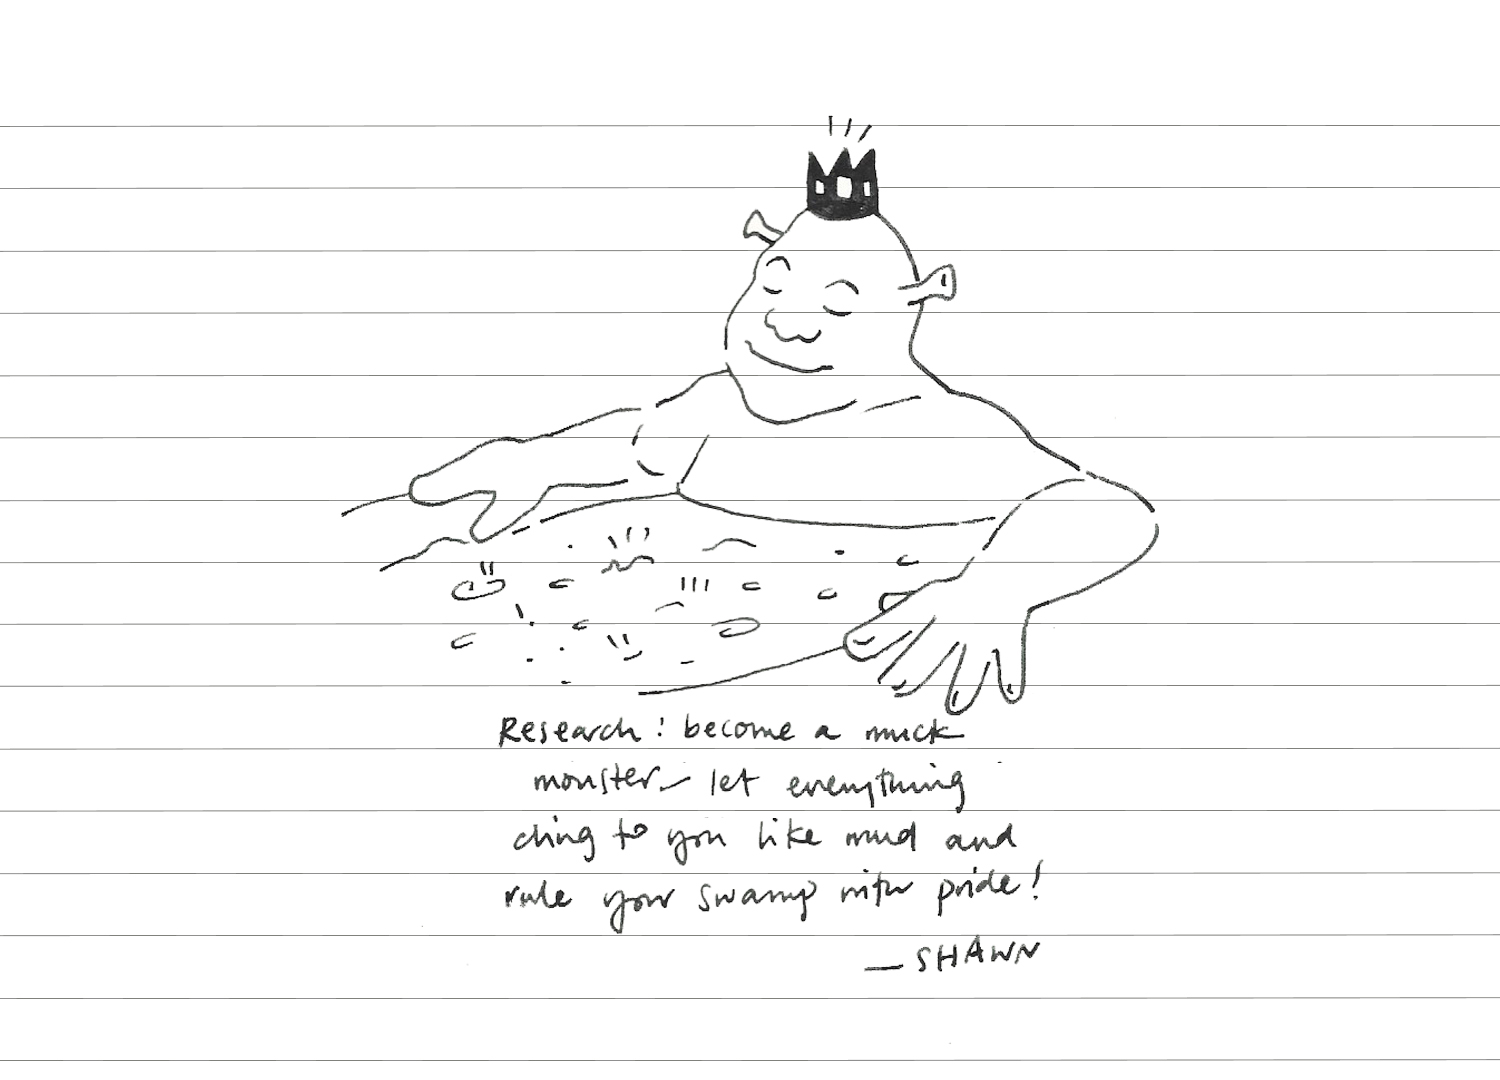 Research! become a muck
monster — let everything
cling to you like mud and
rule your swamp with pride!
— SHAWN